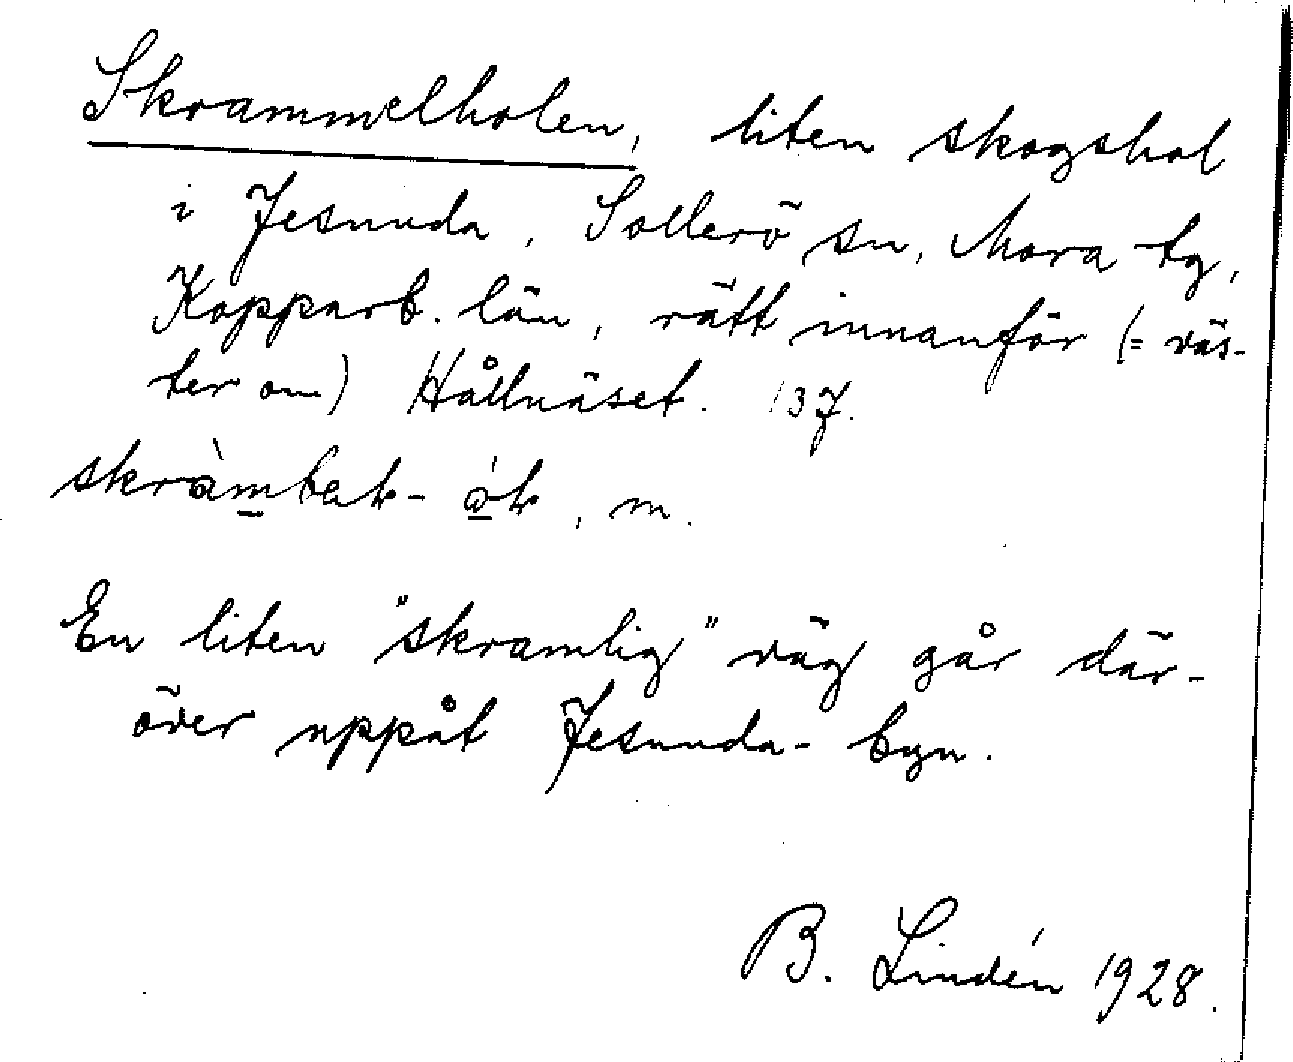 Skrammelholen, liten skogshol
i Jesunda, Sollerö sn, Mora tg,
Kopparb. län, rätt innanför (= väs-
ter om) Hållnäset. 137.
, m.
En liten "skramlig" väg går där-
över uppåt Jesunda-byn.
B. Lindén 1928.